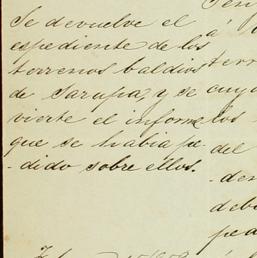 Se devuelve el
espediente de los
terrenos baldios
de Sarupa, y se
vierte el informe
que se habia pe
- dido sobre ellos.
á
terr
cuyo
los
del
- den
debe
pea